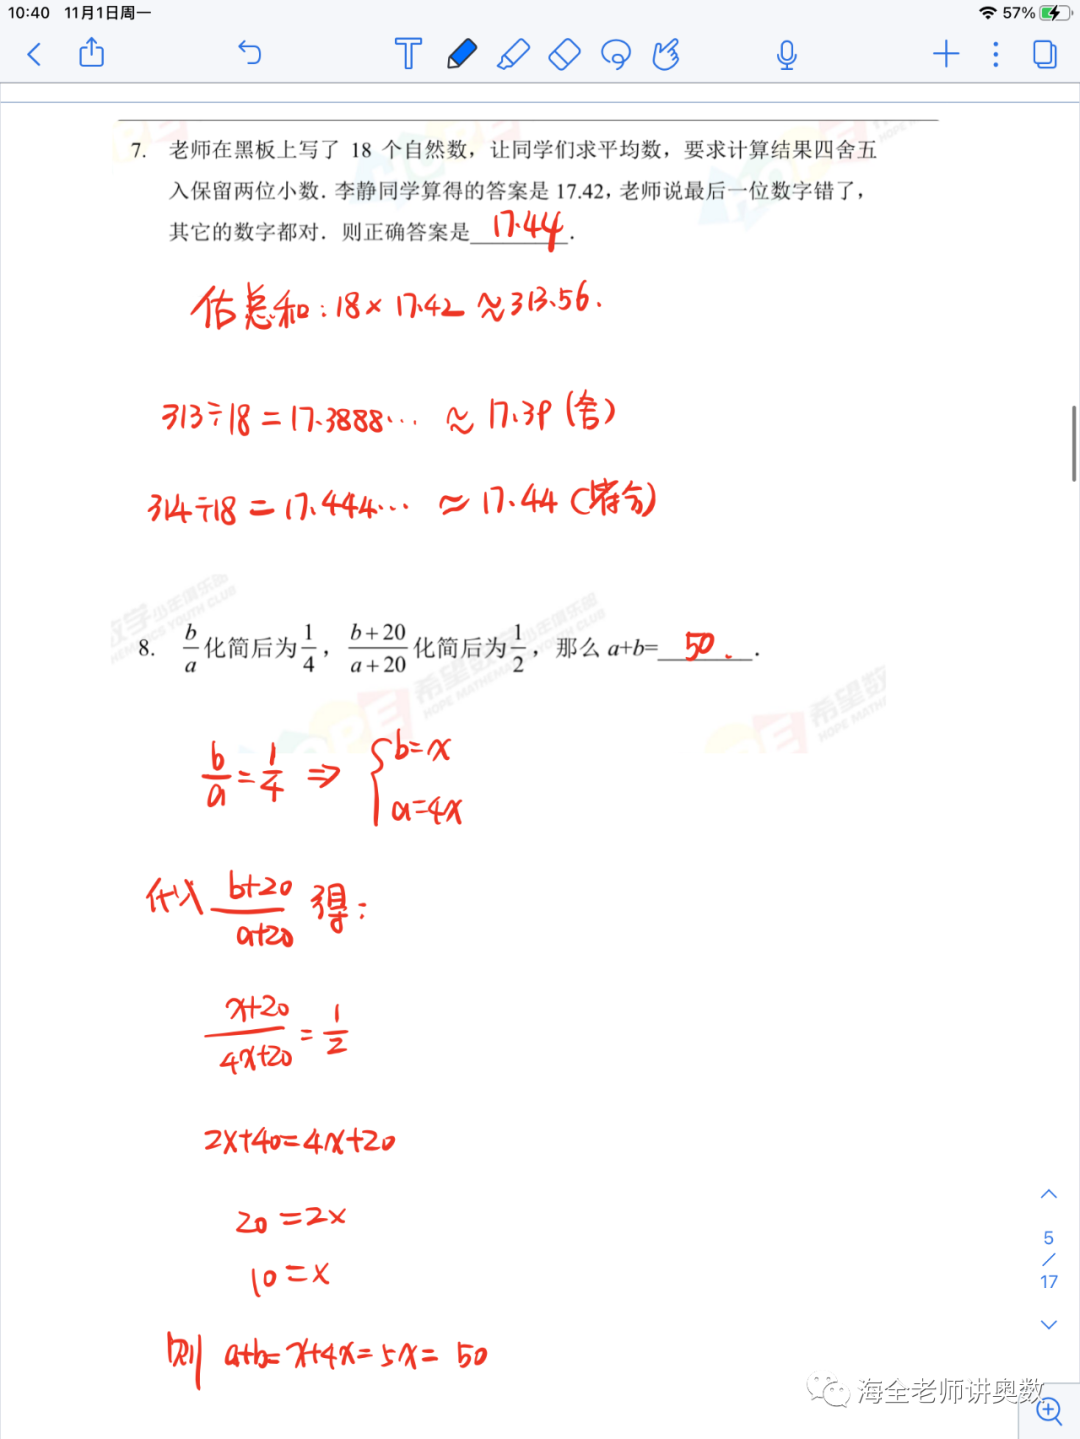 10:40 11月1日周一
57%
7. 老师在黑板上写了 18 个自然数，让同学们求平均数，要求计算结果四舍五
入保留两位小数．李静同学算得的答案是 17.42，老师说最后一位数字错了，
其它的数字都对．则正确答案是 17.44 ．
估总和：18× 17.42 ≈313.56.
313÷18 = 17.3888… ≈ 17.39 (舍)
314÷18 = 17.444… ≈ 17.44 (符合)
8. b/a 化简后为 1/4 ， b+20/a+20 化简后为 1/2 ，那么 a+b= 50. ．
b/a = 1/4 ⇒ { b=x
a=4x
代入 b+20/a+20 得：
x+20/4x+20 = 1/2
2x+40=4x+20
20 =2x
10 =x
则 a+b= x+4x= 5x= 50
5
/
17
海全老师讲奥数